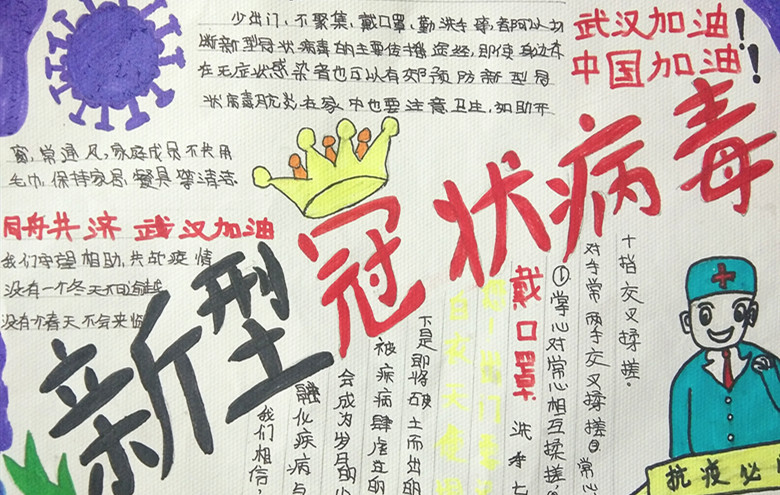 少出门,不聚集,戴口罩,勤洗手等,都可以切
断新型冠状病毒的主要传播途径,即使身边存
在无症状感染者也可以有效预防新型冠
状病毒肺炎在家中也要注意卫生,如勤开
窗,常通风,家庭成员不共用
毛巾,保持家居、餐具等清洁
武汉加油!
中国加油!
同舟共济 武汉加油
我们守望相助,共战疫情
没有一个冬天不可逾越
没有个春天不会来临
新型冠状病毒
戴口罩
洗手七
①掌心对掌心相互揉搓
对手常两手交叉揉搓②常心
十指交叉揉搓.
下是即将破土而出的
被疾病肆虐的
会成为岁月的
融化疾病与
我们相信,
白衣天使
抗疫必